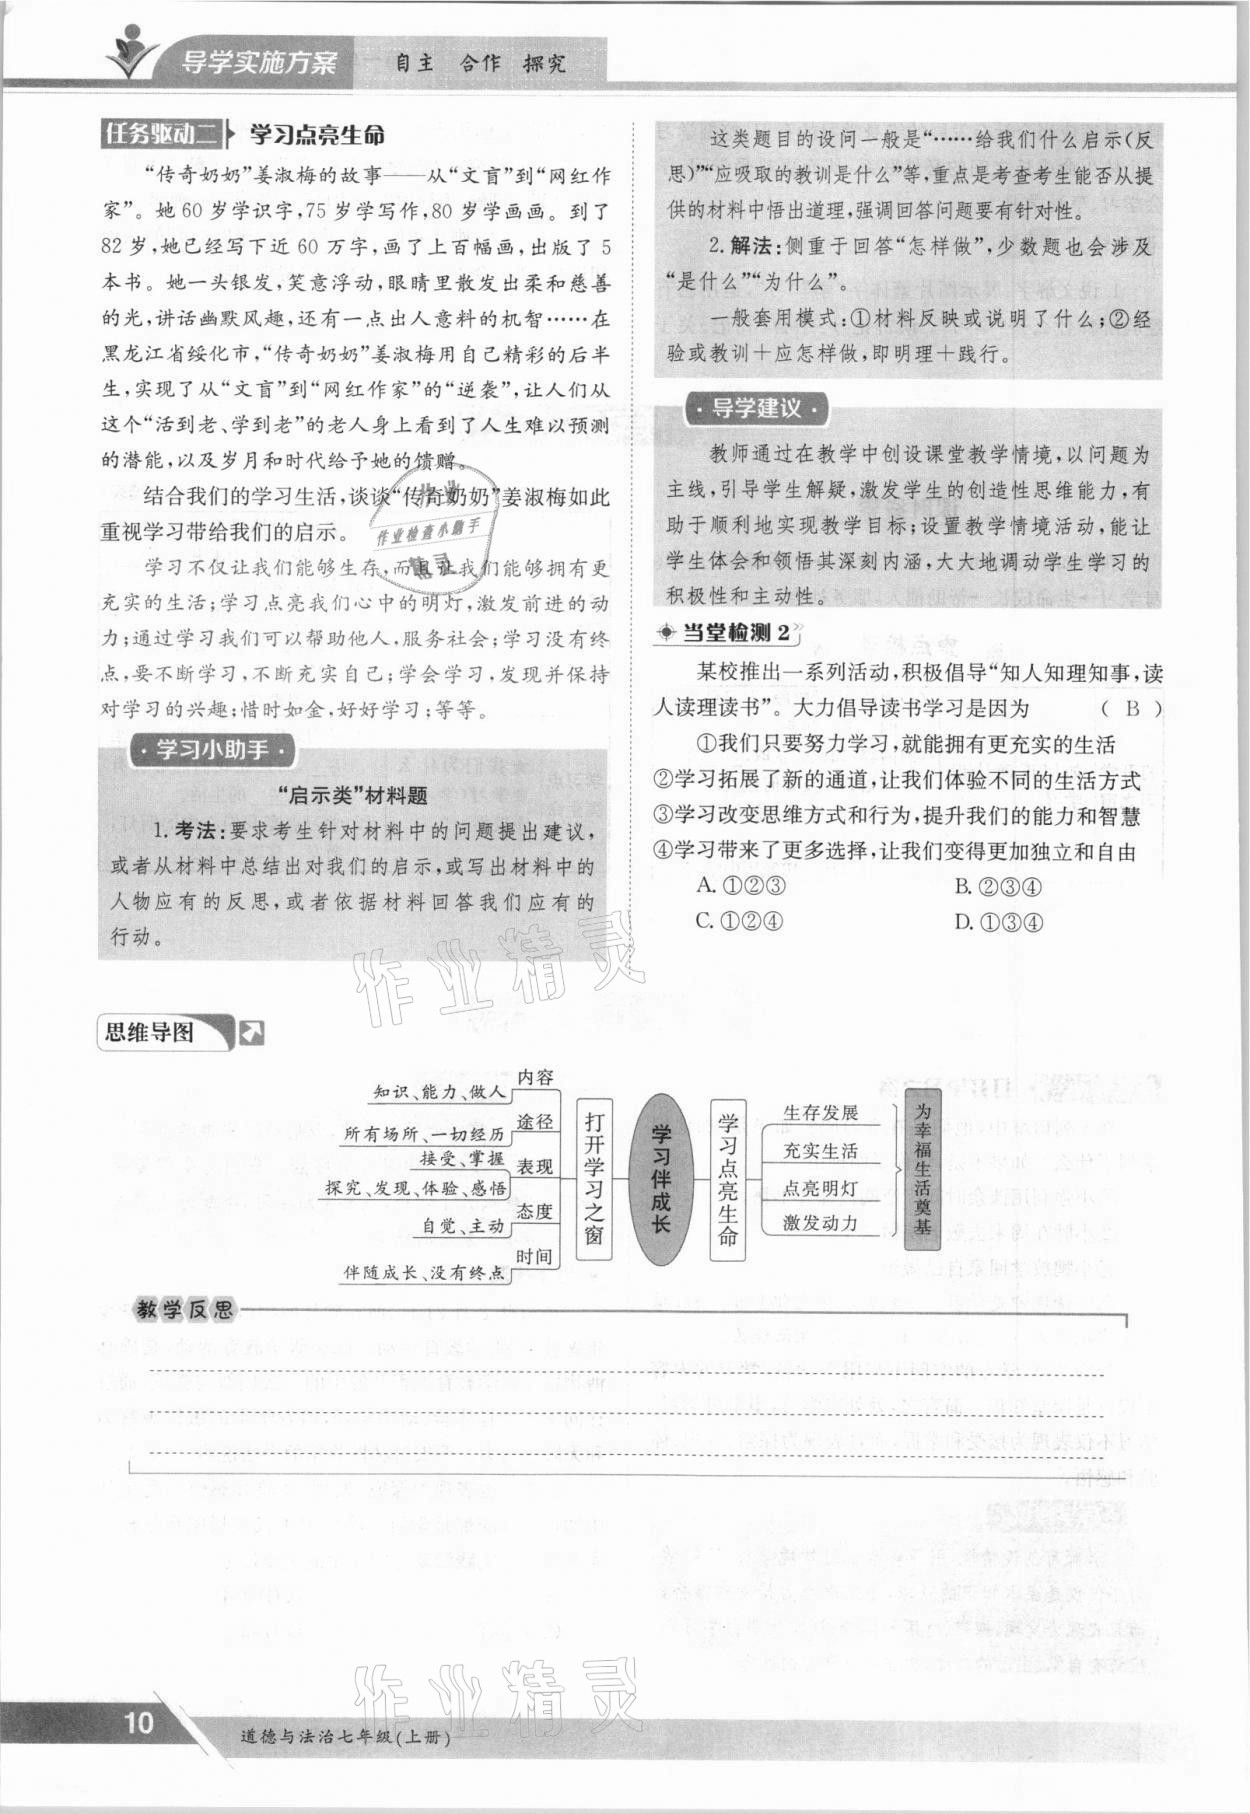 导学实施方案
自主 合作 探究
任务驱动二 学习点亮生命
“传奇奶奶”姜淑梅的故事——从“文盲”到“网红作
家”。她 60 岁学识字,75 岁学写作,80 岁学画画。到了
82 岁,她已经写下近 60 万字,画了上百幅画,出版了 5
本书。她一头银发,笑意浮动,眼睛里散发出柔和慈善
的光,讲话幽默风趣,还有一点出人意料的机智……在
黑龙江省绥化市,“传奇奶奶”姜淑梅用自己精彩的后半
生,实现了从“文盲”到“网红作家”的“逆袭”,让人们从
这个“活到老、学到老”的老人身上看到了人生难以预测
的潜能,以及岁月和时代给予她的馈赠。
结合我们的学习生活,谈谈“传奇奶奶”姜淑梅如此
重视学习带给我们的启示。
学习不仅让我们能够生存,而且让我们能够拥有更
充实的生活;学习点亮我们心中的明灯,激发前进的动
力;通过学习我们可以帮助他人,服务社会;学习没有终
点,要不断学习,不断充实自己;学会学习,发现并保持
对学习的兴趣;惜时如金,好好学习;等等。
·学习小助手·
“启示类”材料题
1. 考法:要求考生针对材料中的问题提出建议,
或者从材料中总结出对我们的启示,或写出材料中的
人物应有的反思,或者依据材料回答我们应有的
行动。
这类题目的设问一般是“……给我们什么启示(反
思)”“应吸取的教训是什么”等,重点是考查考生能否从提
供的材料中悟出道理,强调回答问题要有针对性。
2. 解法:侧重于回答“怎样做”,少数题也会涉及
“是什么”“为什么”。
一般套用模式:①材料反映或说明了什么;②经
验或教训+应怎样做,即明理+践行。
·导学建议·
教师通过在教学中创设课堂教学情境,以问题为
主线,引导学生解疑,激发学生的创造性思维能力,有
助于顺利地实现教学目标;设置教学情境活动,能让
学生体会和领悟其深刻内涵,大大地调动学生学习的
积极性和主动性。
当堂检测 2
某校推出一系列活动,积极倡导“知人知理知事,读
人读理读书”。大力倡导读书学习是因为 ( B )
①我们只要努力学习,就能拥有更充实的生活
②学习拓展了新的通道,让我们体验不同的生活方式
③学习改变思维方式和行为,提升我们的能力和智慧
④学习带来了更多选择,让我们变得更加独立和自由
A. ①②③ B. ②③④
C. ①②④ D. ①③④
作业
作业检查小助手
慧灵
作业精灵
思维导图
内容
知识、能力、做人
途径
所有场所、一切经历
表现
接受、掌握
探究、发现、体验、感悟
态度
自觉、主动
时间
伴随成长、没有终点
打开学习之窗
学习伴成长
学习点亮生命
生存发展
充实生活
点亮明灯
激发动力
为幸福生活奠基
教学反思
作业精灵
10
道德与法治七年级(上册)